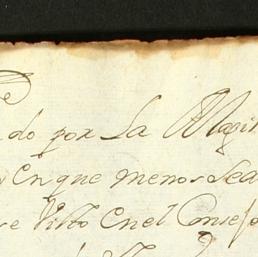 e
do por La Magin
Enque menos Sea
se Visto Enel Consejo